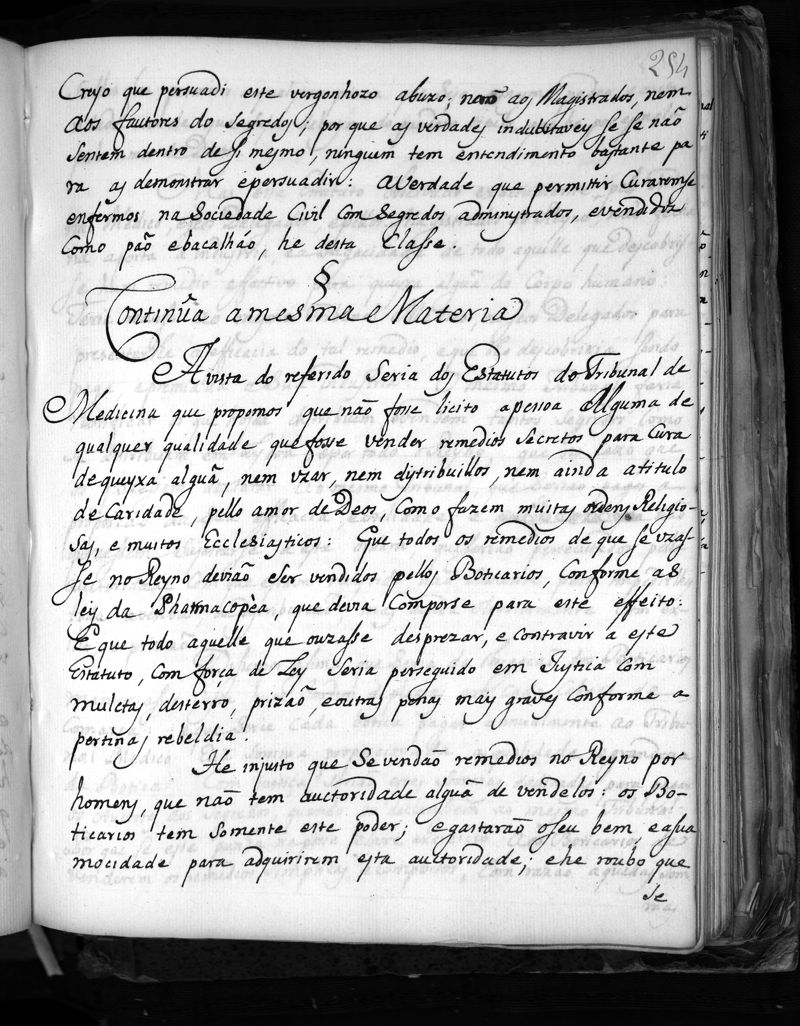 254
Creyo que persuadi este vergonhozo abuzo; nem aos Magistrados, nem
aos fautores do segredos; por que as verdades indubitaveis se se naõ
sentem dentro de si mesmo, ninguem tem entendimento bastante pa
ra as demonstrar epersuadir: averdade que permittir Curaremse
enfermos na Sociedade Civil com segredos administrados, evendidos
Como paõ ebacalháo, he desta Classe.
§
Continũa amesma Materia
Avista do referido Seria dos Estatutos do Tribunal de
Medicina que propomos que naõ fosse licito apessoa Alguma de
qualquer qualidade quefosse vender remedios secretos para Cura
dequeyxa alguã, nem vzar, nem distribuillos, nem ainda atitulo
de Caridade, pello amor de Deos, Como fazem muitas ordens Religio-
sas, e muitos Ecclesiasticos: Que todos os remedios de que se vzas-
se no Reyno deviaõ ser vendidos pellos Boticarios, Conforme as
ley da Pharmacopèa, que devia Comporse para este effeito:
E que todo aquelle que ouzasse desprezar, e contravir a este
Estatuto, com força de Ley Seria perseguido em Justica com
mulctas, desterro, prizaõ, eoutras penas mays graves Conforme a
pertinas rebeldia.
He injusto que Se vendaõ remedios no Reyno por
homens, que naõ tem auctoridade alguã de vendelos: os Bo-
ticarios tem somente este poder; egastaraõ oseu bem, easua
mocidade para adquirirem esta auctoridade; ehe roubo que
se